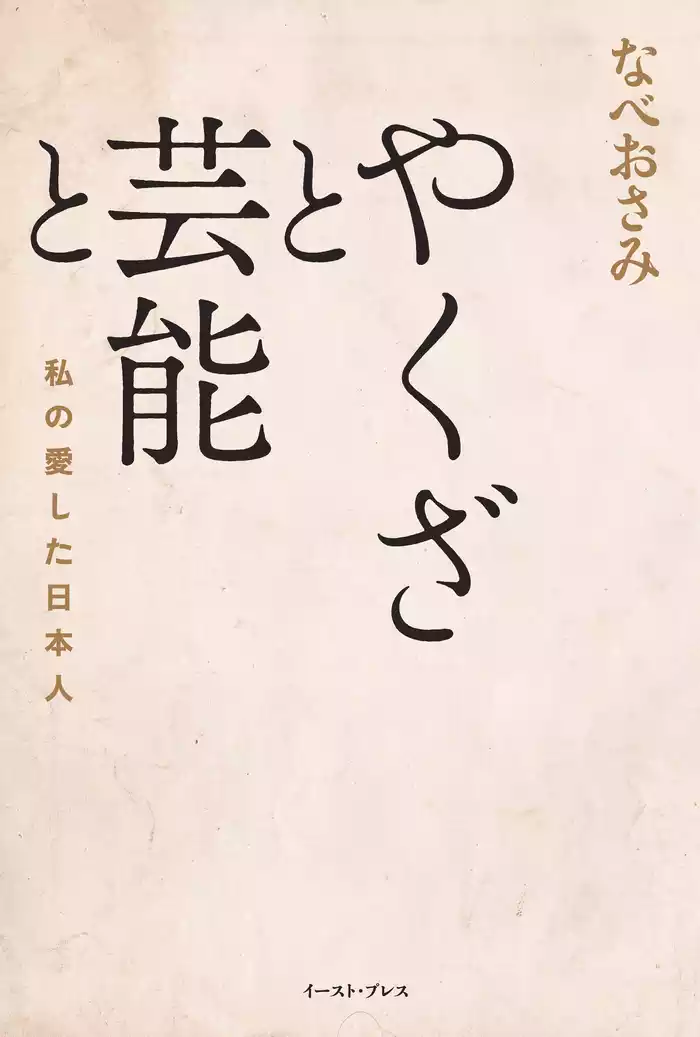 なべおさみ
やくざ
と
芸能
と
私の愛した日本人
イースト・プレス